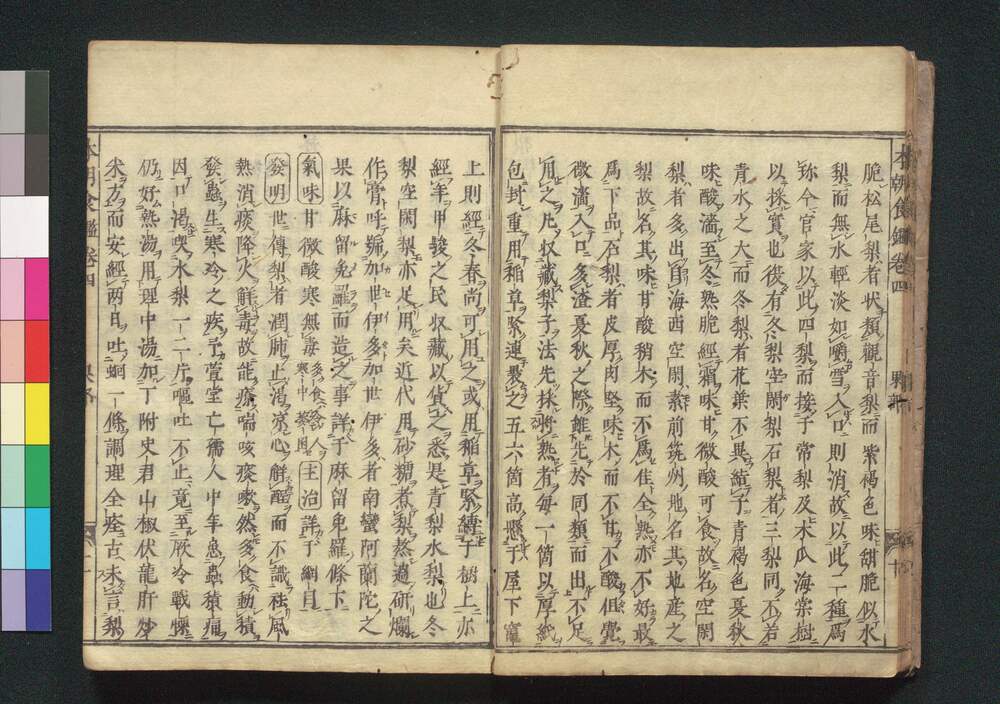 脆松尾梨者状類觀音梨而紫褐色味甜脆似水
梨而無水輕淡如嚼雪入口則消故以此二種爲
珎今官家以此四梨而接子常梨及木瓜海棠樹
以採實也後有冬梨空閑梨石梨者三梨同不若
青水之大而冬梨者花葉不異結子青褐色夏秋
味酸濇至冬熟脆經霜味甘微酸可食故名空閑
梨者多出自海西空閑素前筑州地名其地産之
梨故名其味甘酸稍木而不爲佳全熟亦不好最
爲下品石梨者皮厚肉堅味木而不甘不酸但覺
微濇入口多渣夏秋之際雖先於同類而出不足
用之凡収藏梨子法先採將熟者毎一箇以厚紙
包封重用稲草緊連裹之五六箇高懸于屋下竃
上則經冬春尚可用之或用稲草緊縳于樹上亦
經年甲駿之民収藏以貨之悉是青梨水梨也冬
梨空閑梨亦足用矣近代用砂糖煮梨熬過研爛
作膏呼號加世伊多加世伊多者南蠻阿蘭陀之
果以麻留免羅而造之事詳于麻留免羅條下
氣味甘微酸寒無毒多食冷人寒中主治詳于綱目
發明世傳梨者潤肺止渇凉心解酲而不識祛風
熱消痰降火鮮毒故能療喘咳痰嗽然多食動積
發蟲生寒冷之疾予萱堂亡孺人中年患蟲積痛
因口渇喫水梨一二片嘔吐不止竟至厥冷戰慄
仍好熱湯用理中湯加丁附史君山椒伏龍肝炒
米方而安經两日吐蚘一條調理全痊古未言梨
本朝食鑑卷四
本朝食鑑卷四